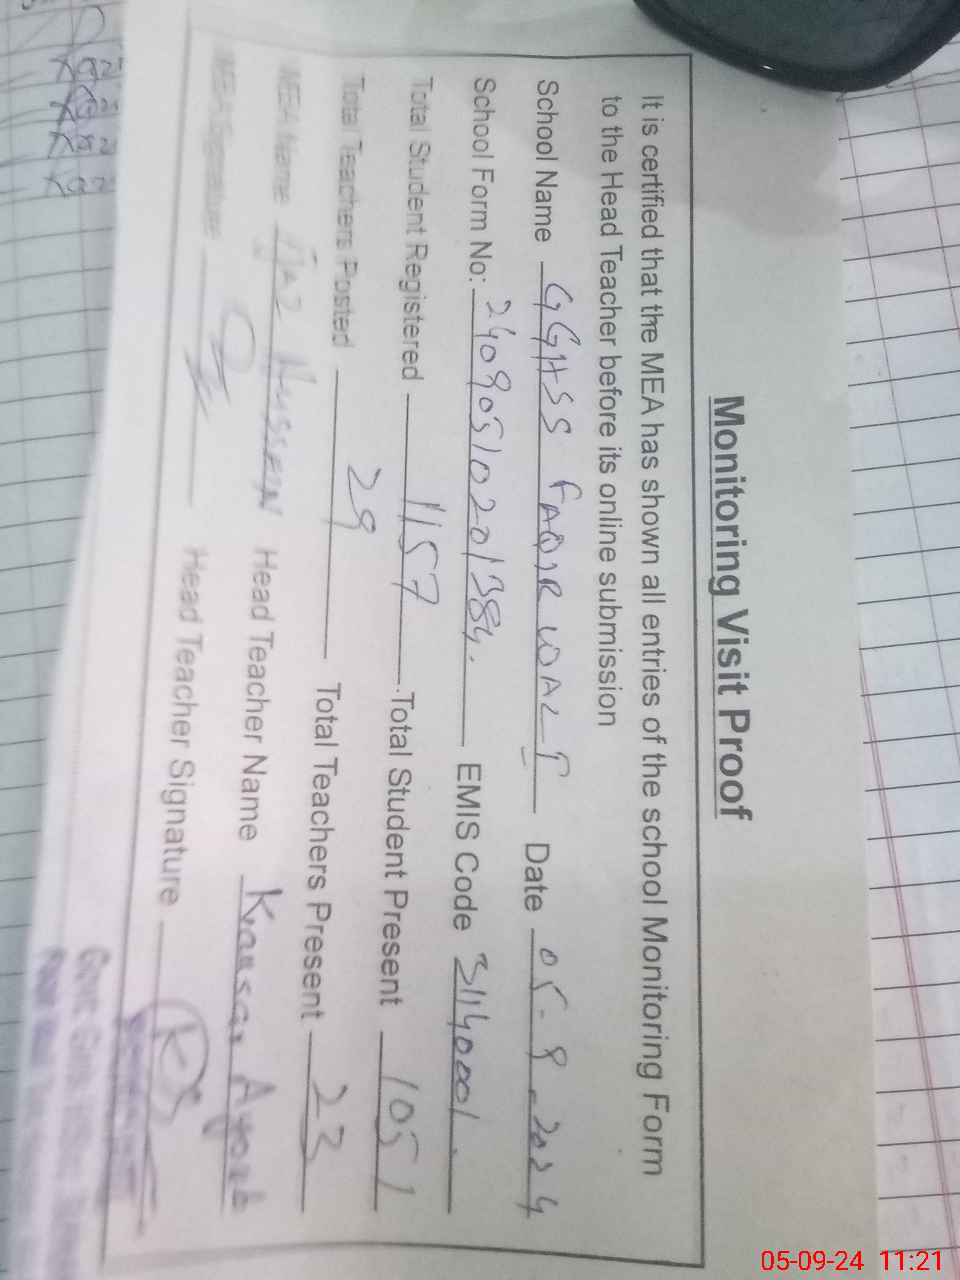 Monitoring Visit Proof
It is certified that the MEA has shown all entries of the school Monitoring Form
to the Head Teacher before its online submission
School Name GGHSS FAQIR WALI Date 05-9-2024
School Form No: 24090510201384. EMIS Code 31140001.
Total Student Registered 1157 Total Student Present 1051
Total Teachers Posted 29 Total Teachers Present 23
MEA Name Ijaz Hussain Head Teacher Name Kausar Ayoub
MEA Signature Head Teacher Signature
Govt. Girls
05-09-24 11:21